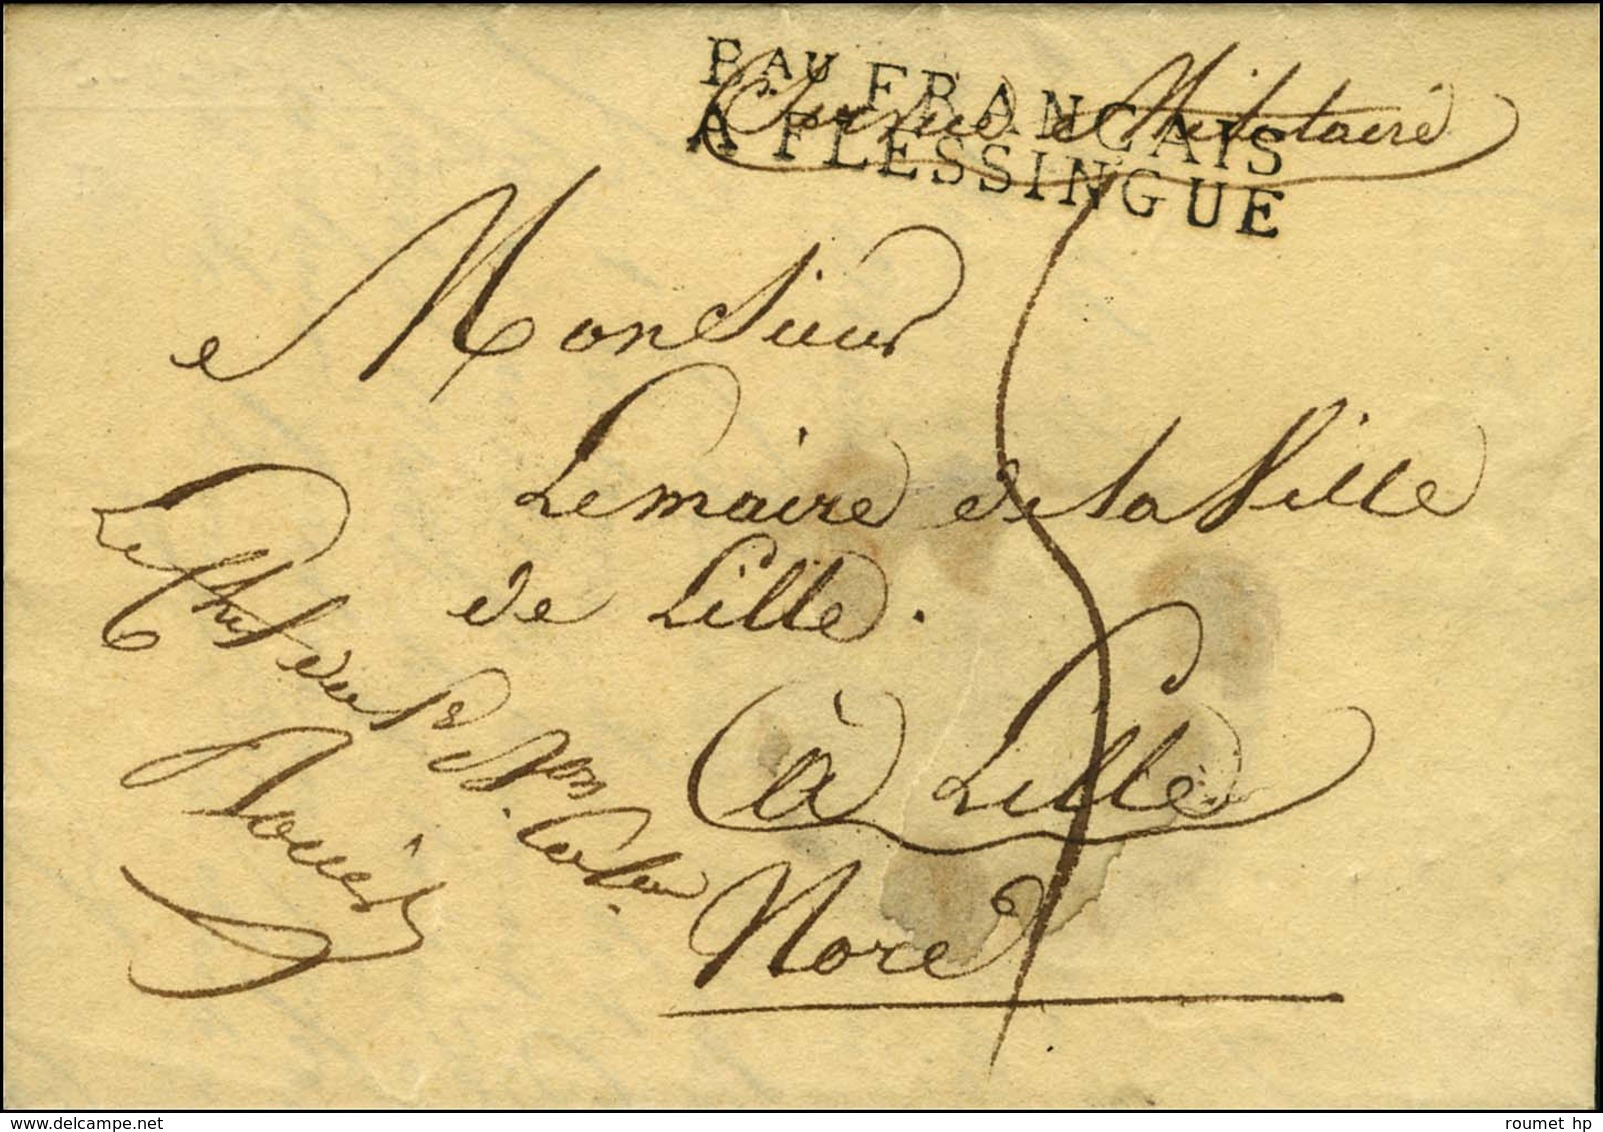 B.AU FRANÇAIS
A FLESSINGUE
Service Militaire
Monsieur
Lemaire de la Ville
de Lille.
à Lille
Nord
Le Chef du
roumet hp